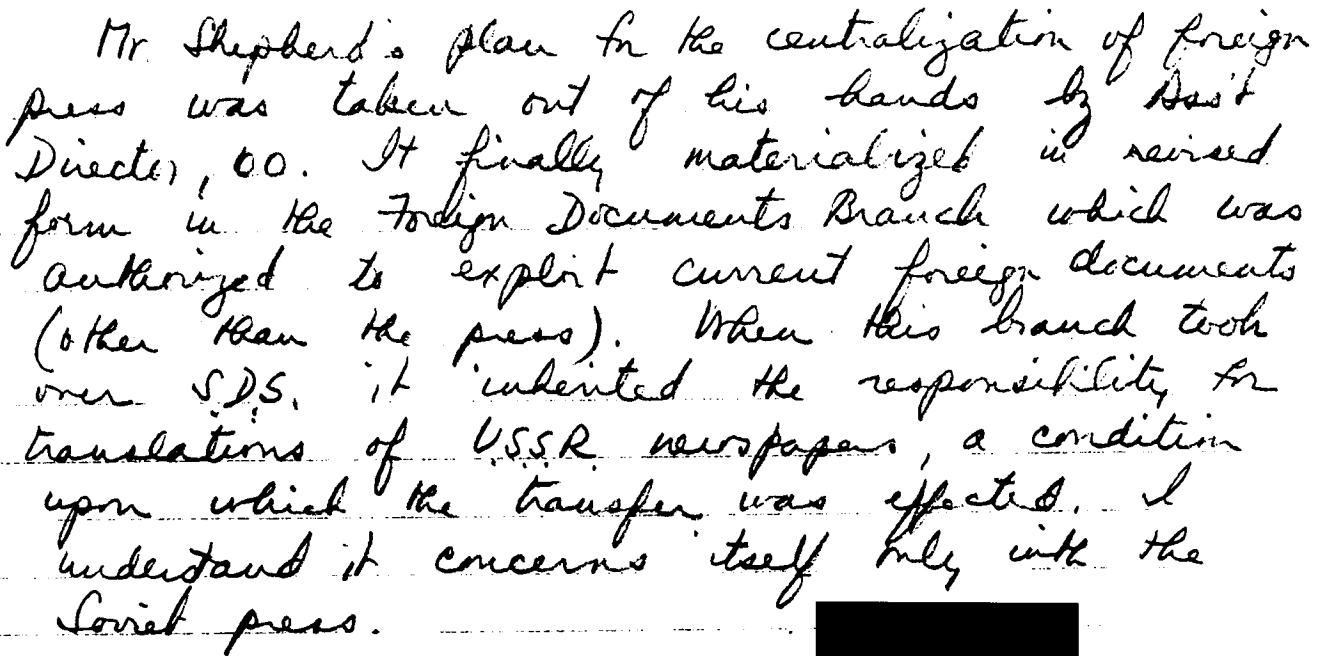 Mr Shepherd's plan for the centralization of foreign
press was taken out of his hands by Ass't
Director, OO. It finally materialized in revised
form in the Foreign Documents Branch which was
authorized to exploit current foreign documents
(other than the press). When this branch took
over S.D.S. it inherited the responsibility for
translations of U.S.S.R. newspapers, a condition
upon which the transfer was effected. I
understand it concerns itself only with the
Soviet press.